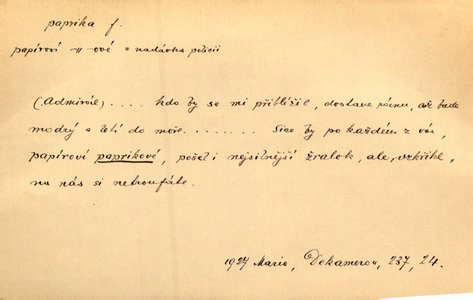 paprika f.
papíroví -"- ové = nadávka policii
(Admirál) . . . . kdo by se mi přiblížil, dostave ránu, až bude
modrý a letí do moře. . . . . . . . Sice by po každém z vás,
papírové paprikové, pošel i nejsilnější žralok, ale, vzkřikl,
na nás si netroufáte.
1927 Maria, Dekameron, 237, 24.